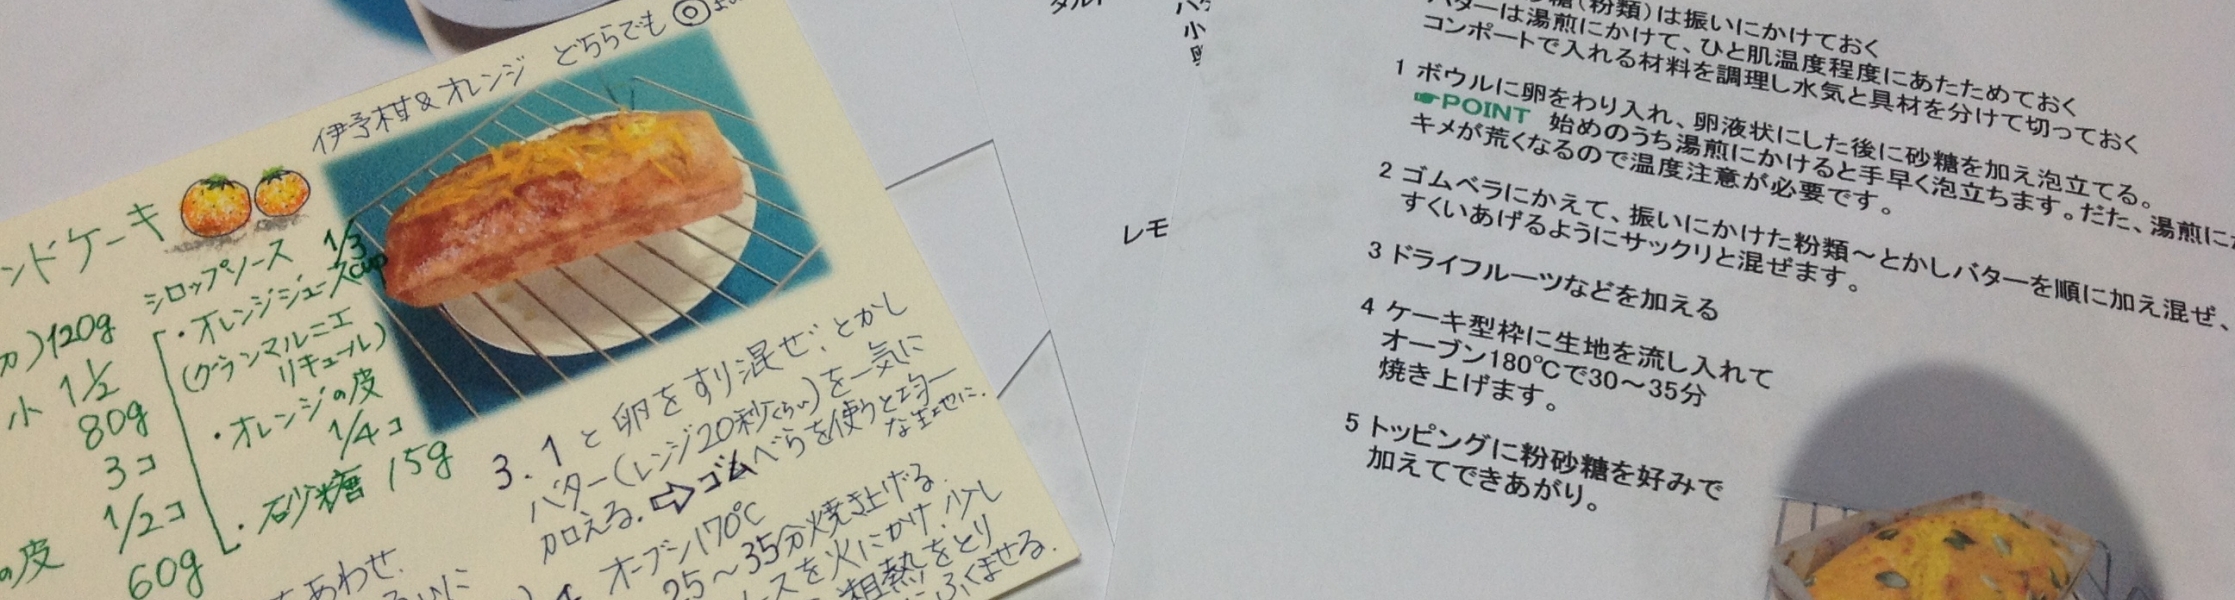 伊予柑&オレンジ どちらでも◎
ンドケーキ
120g
小 1 1/2
80g
3コ
1/2コ
の皮
60g
シロップソース 1/3cup
・オレンジジュース
(グランマルニエ
リキュール)
・オレンジの皮
1/4コ
・砂糖 15g
あわせ.
3. 1と卵をすり混ぜ、とかし
バター(レンジ20秒くらい)を一気に
加える.⇨ゴムべらを使うと均一
な生地に.
オーブン170℃
25〜35分焼き上げる.
ースを火にかけ、少し
粗熱をとり
ふくませる.
レモ
小
糖(粉類)は振いにかけておく
バターは湯煎にかけて、ひと肌温度程度にあたためておく
コンポートで入れる材料を調理し水気と具材を分けて切っておく
1 ボウルに卵をわり入れ、卵液状にした後に砂糖を加え泡立てる。
☛POINT 始めのうち湯煎にかけると手早く泡立ちます。だた、湯煎に
キメが荒くなるので温度注意が必要です。
2 ゴムベラにかえて、振いにかけた粉類〜とかしバターを順に加え混ぜ、
すくいあげるようにサックリと混ぜます。
3 ドライフルーツなどを加える
4 ケーキ型枠に生地を流し入れて
オーブン180℃で30〜35分
焼き上げます。
5 トッピングに粉砂糖を好みで
加えてできあがり。